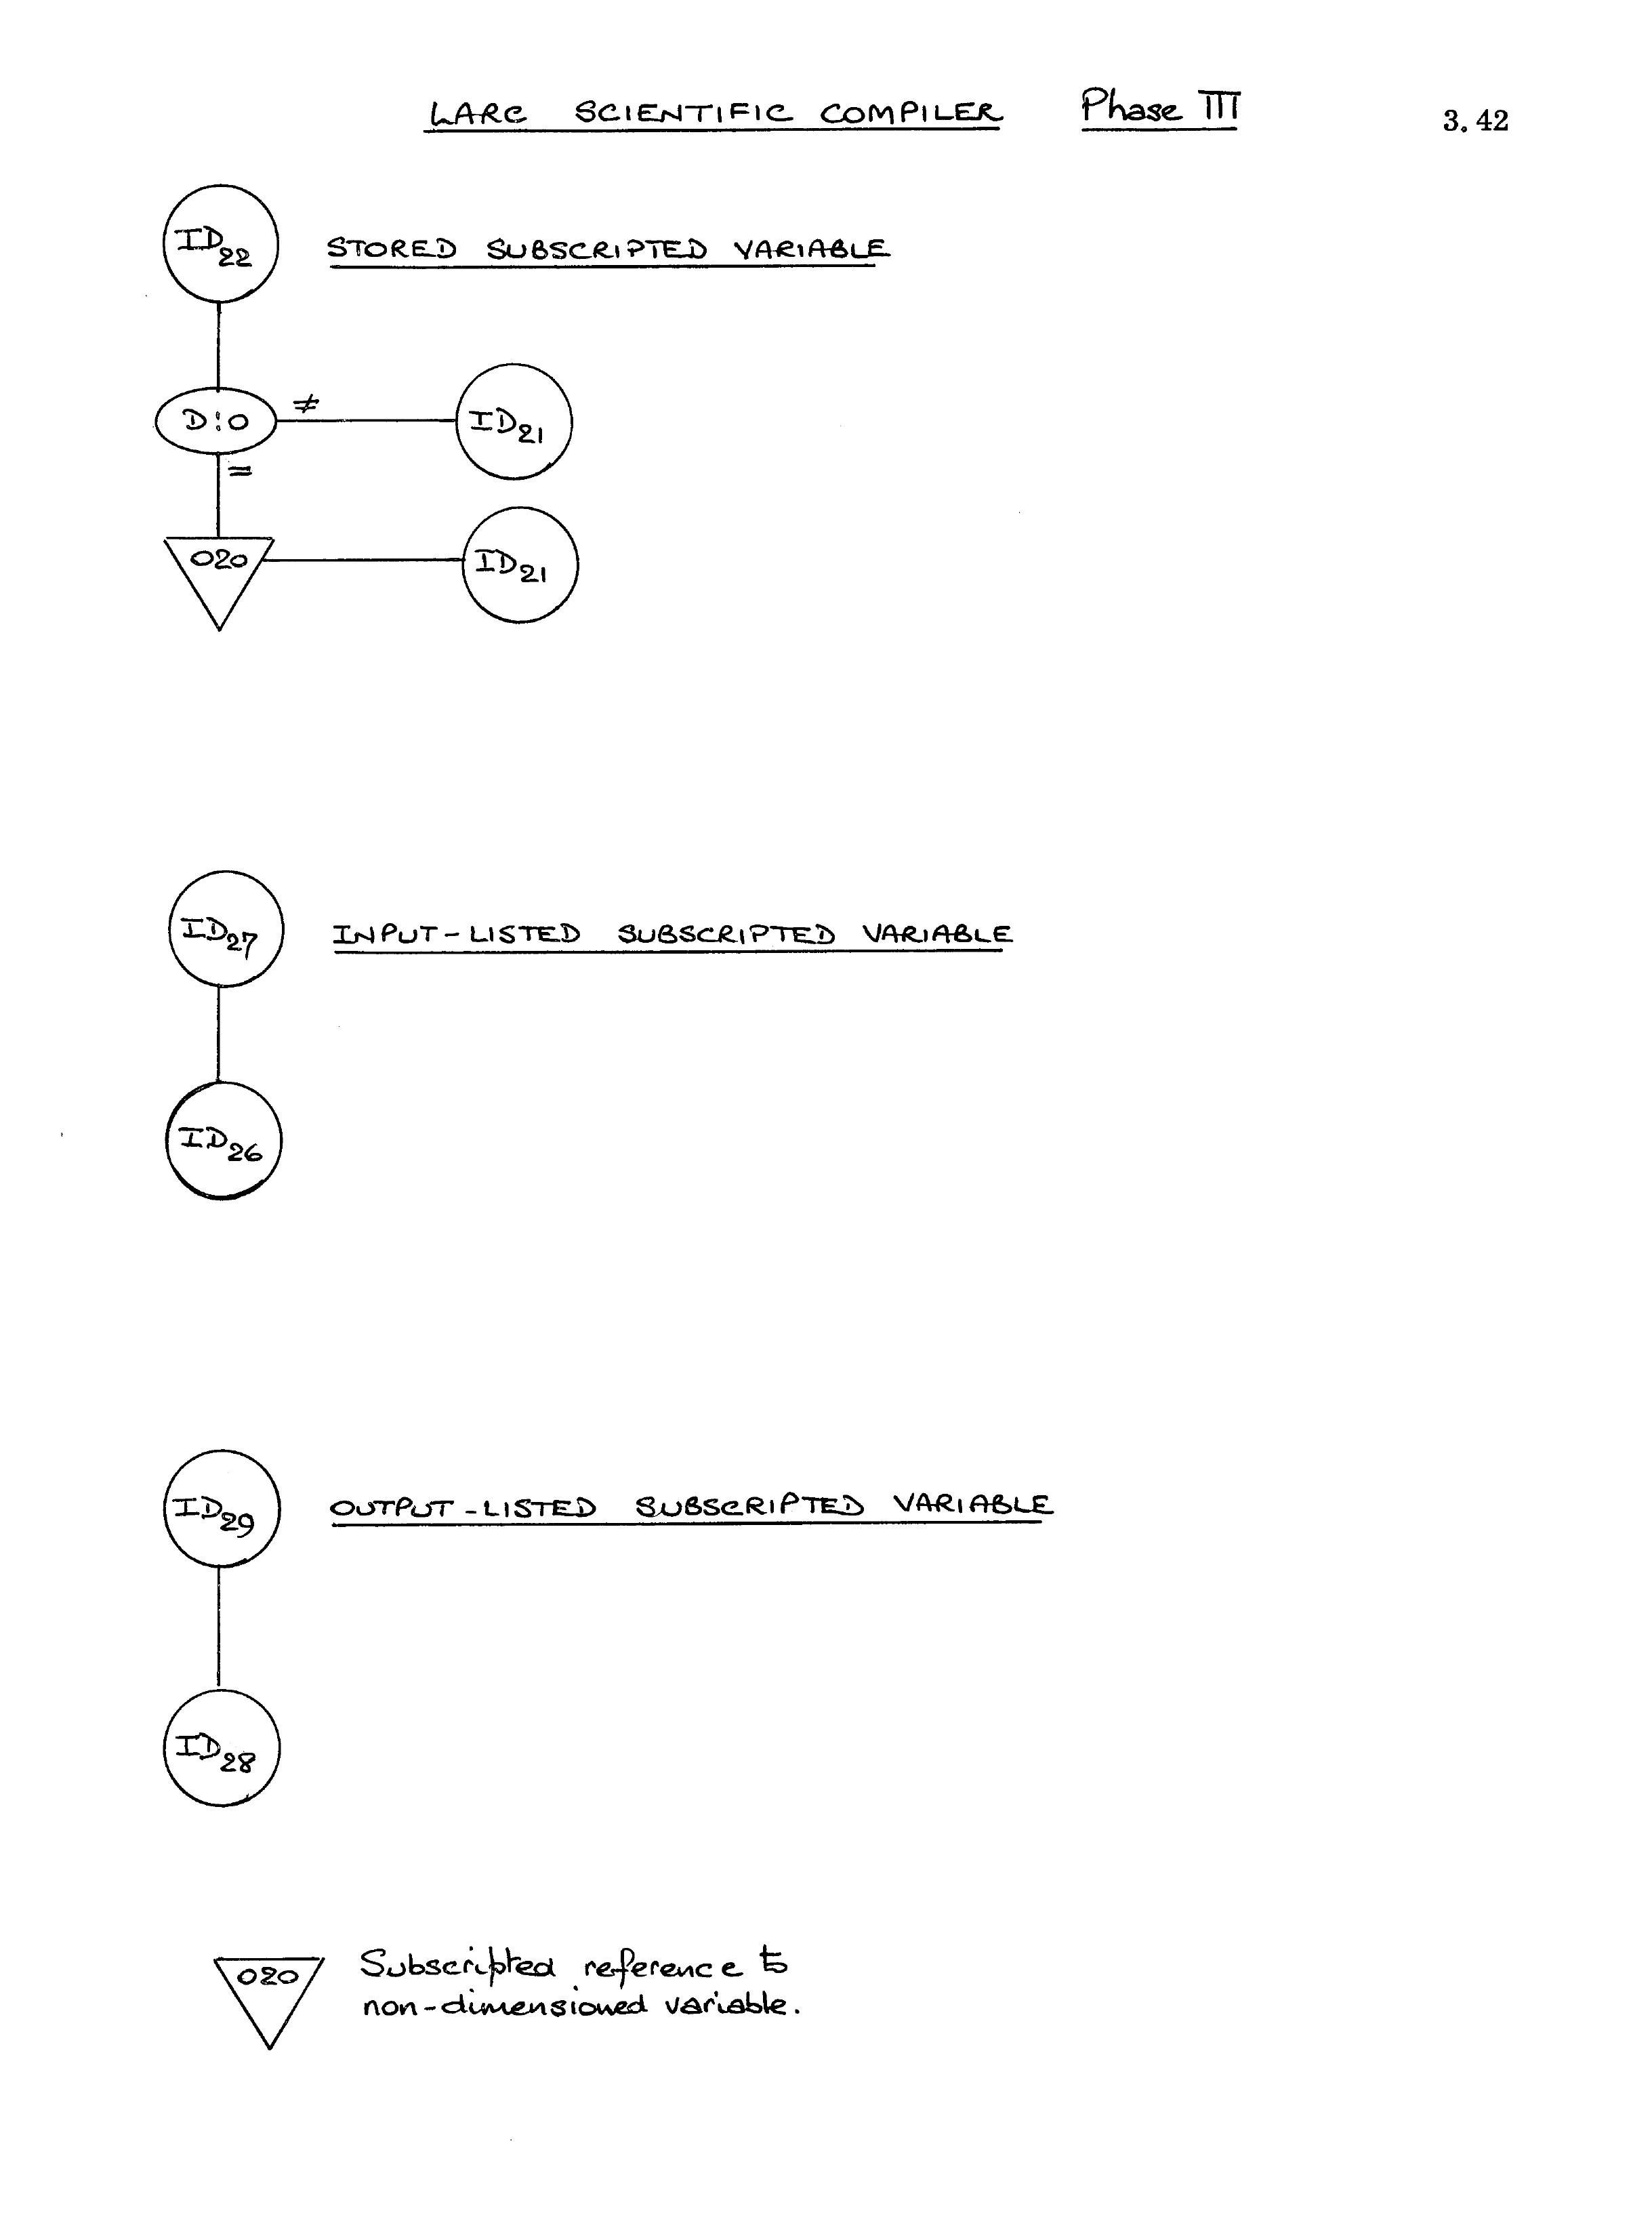 LARC SCIENTIFIC COMPILER Phase III 3.42
ID22 STORED SUBSCRIPTED VARIABLE
D:0 ≠ ID21
=
020 ID21
ID27 INPUT-LISTED SUBSCRIPTED VARIABLE
ID26
ID29 OUTPUT-LISTED SUBSCRIPTED VARIABLE
ID28
020 Subscripted reference to
non-dimensioned variable.